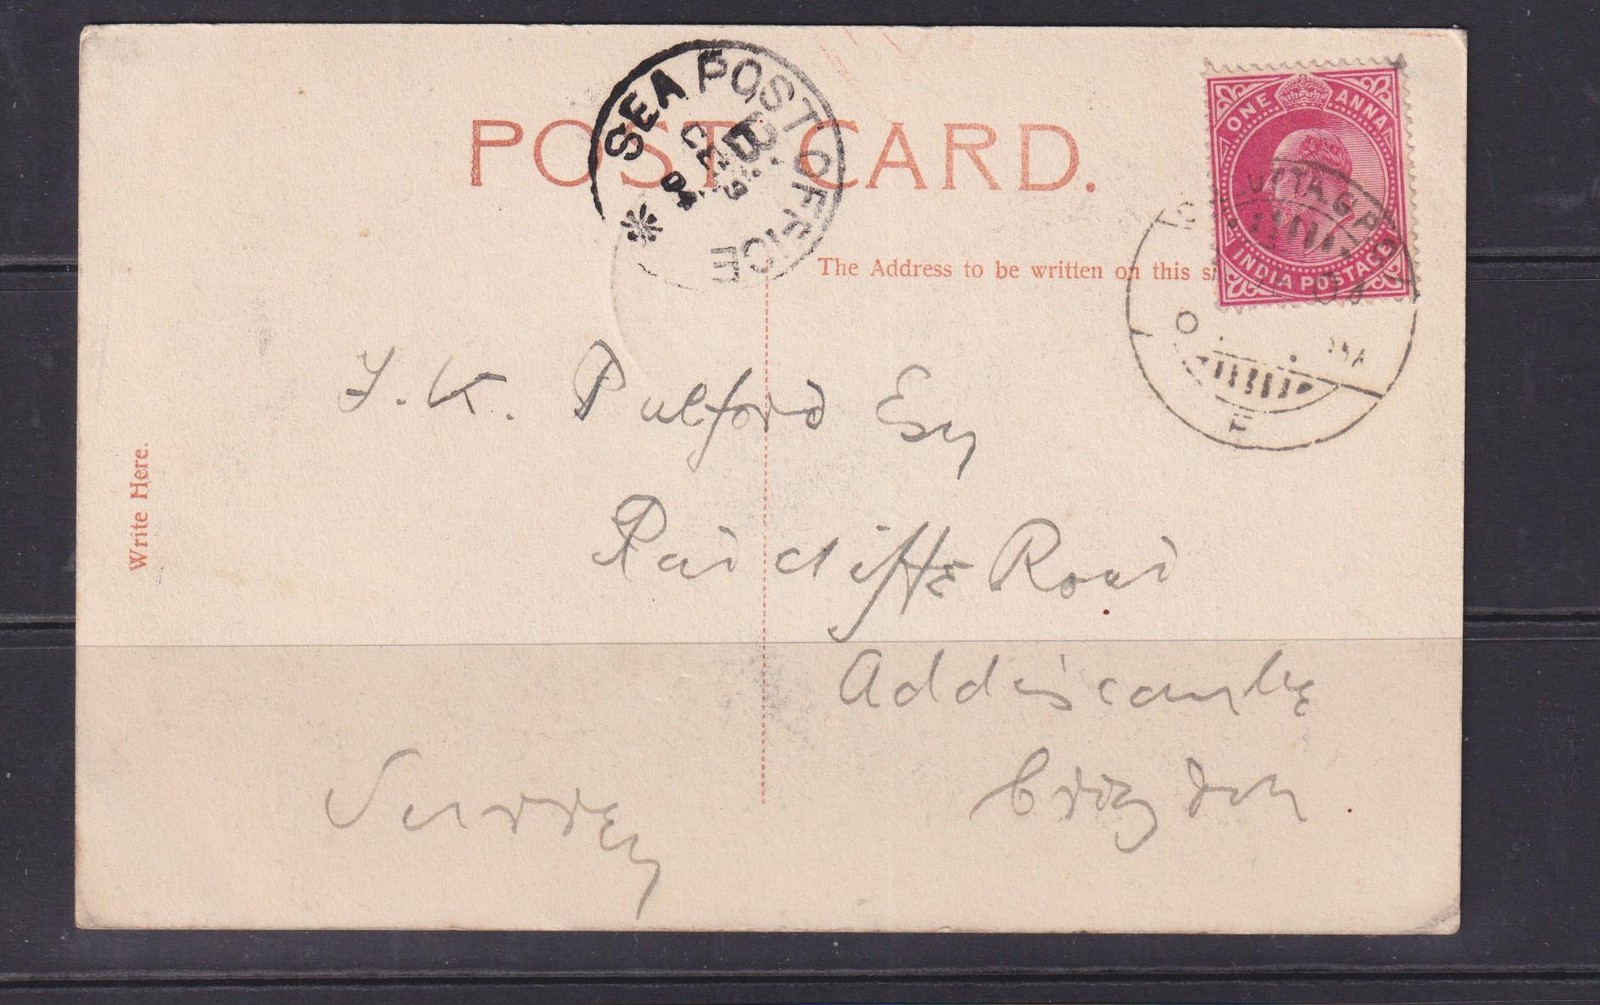 SEA POST OFFICE
POST CARD.
ONE ANNA
INDIA POSTAGE
The Address to be written on this
Write Here.
J. K. Pulford Esq
Radcliffe Road
Addiscombe
Croydon
Surrey